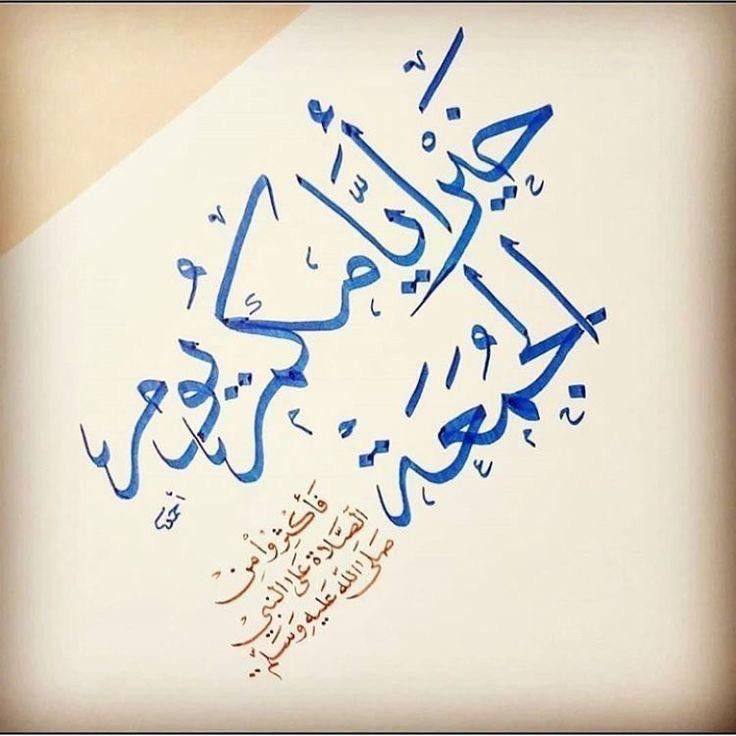 خَيْرُ أَيَّامكم يوم
الجُمُعَة
فَأَكْثِرُوا مِنْ
الصَّلَاة عَلَى النبي
صَلَى اللَّه عَلَيهِ وَسَلَّم..